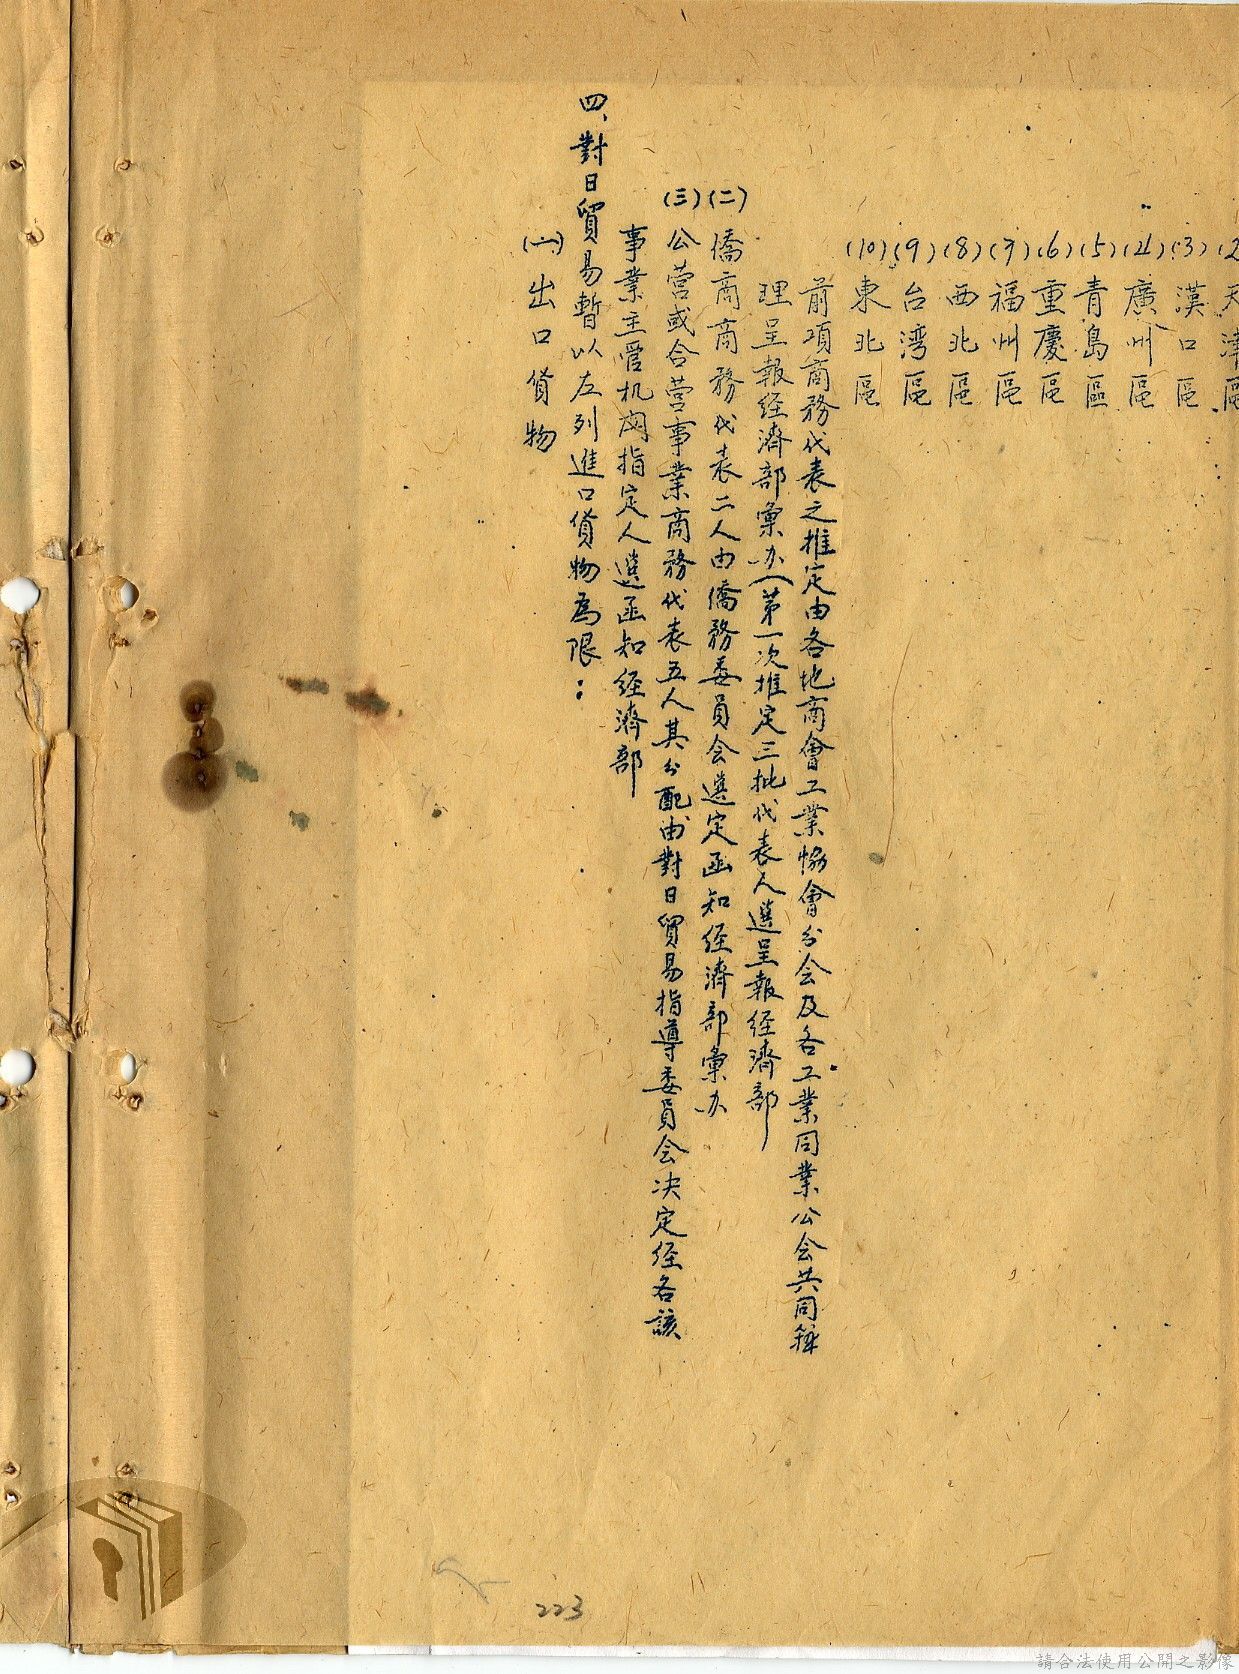 (2)天津區
(3)漢口區
(4)廣州區
(5)青島區
(6)重慶區
(7)福州區
(8)西北區
(9)台湾區
(10)東北區
前項商務代表之推定由各地商會工業協會分会及各工業同業公会共同辦
理呈報经濟部彙办(第一次推定三批代表人選呈報经濟部
(二)僑商商務代表二人由僑務委員会選定函知经濟部彙办
(三)公营或合营事業商務代表五人其分配由對日貿易指導委員会决定经各該
事業主管机関指定人選函知经濟部
四、對日貿易暫以左列進口貨物為限：
(一)出口貨物
223
請合法使用公開之影像